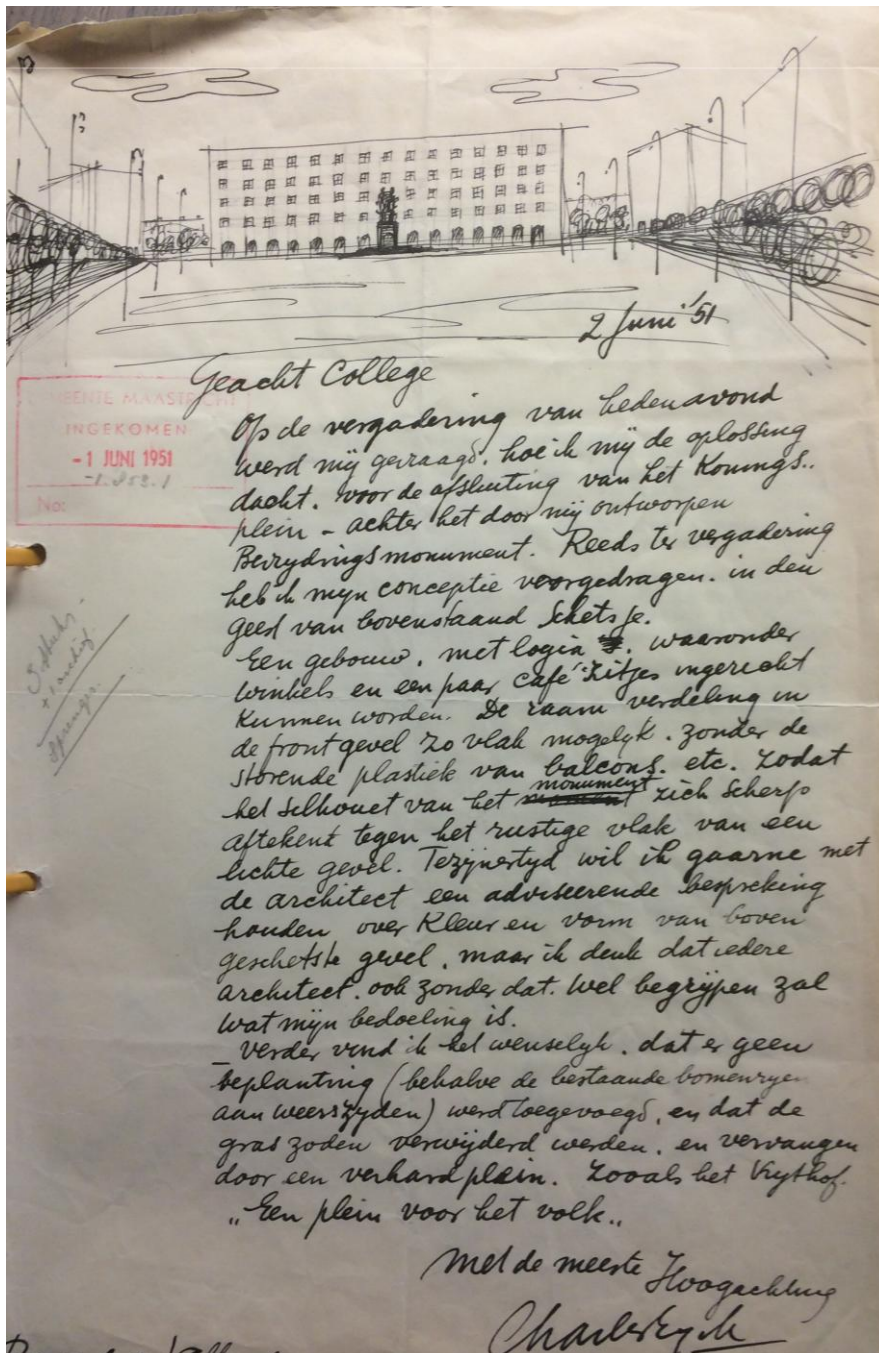 2 Juni '51
Geacht College
GEMEENTE MAASTRICHT
INGEKOMEN
- 1 JUNI 1951
No:
Op de vergadering van heden avond
werd mij gevraagd, hoe ik mij de oplossing
dacht, voor de afsluiting van het Konings..
plein - achter het door mij ontworpen
Bevrydingsmonument. Reeds ter vergadering
heb ik myn conceptie voorgedragen. in den
geest van bovenstaand schetsje.
Een gebouw, met logia waaronder
winkels en een paar café zitjes ingericht
kunnen worden. De raam verdeling in
de frontgevel zo vlak mogelyk. zonder de
storende plastiek van balcons. etc. zodat
het silhouet van het monument zich scherp
aftekent tegen het rustige vlak van een
lichte gevel. Tezijnertyd wil ik gaarne met
de architect een adviseerende bespreking
houden over kleur en vorm van boven
geschetste gevel, maar ik denk dat iedere
architect, ook zonder dat. wel begrijpen zal
wat mijn bedoeling is.
– Verder vind ik het wenselyk, dat er geen
beplanting (behalve de bestaande bomenryen
aan weerszyden) werd toegevoegd, en dat de
gras zoden verwijderd werden, en vervangen
door een verhard plein. Zooals het Vrythof.
„Een plein voor het volk„
Met de meeste Hoogachting
Charles Eyck